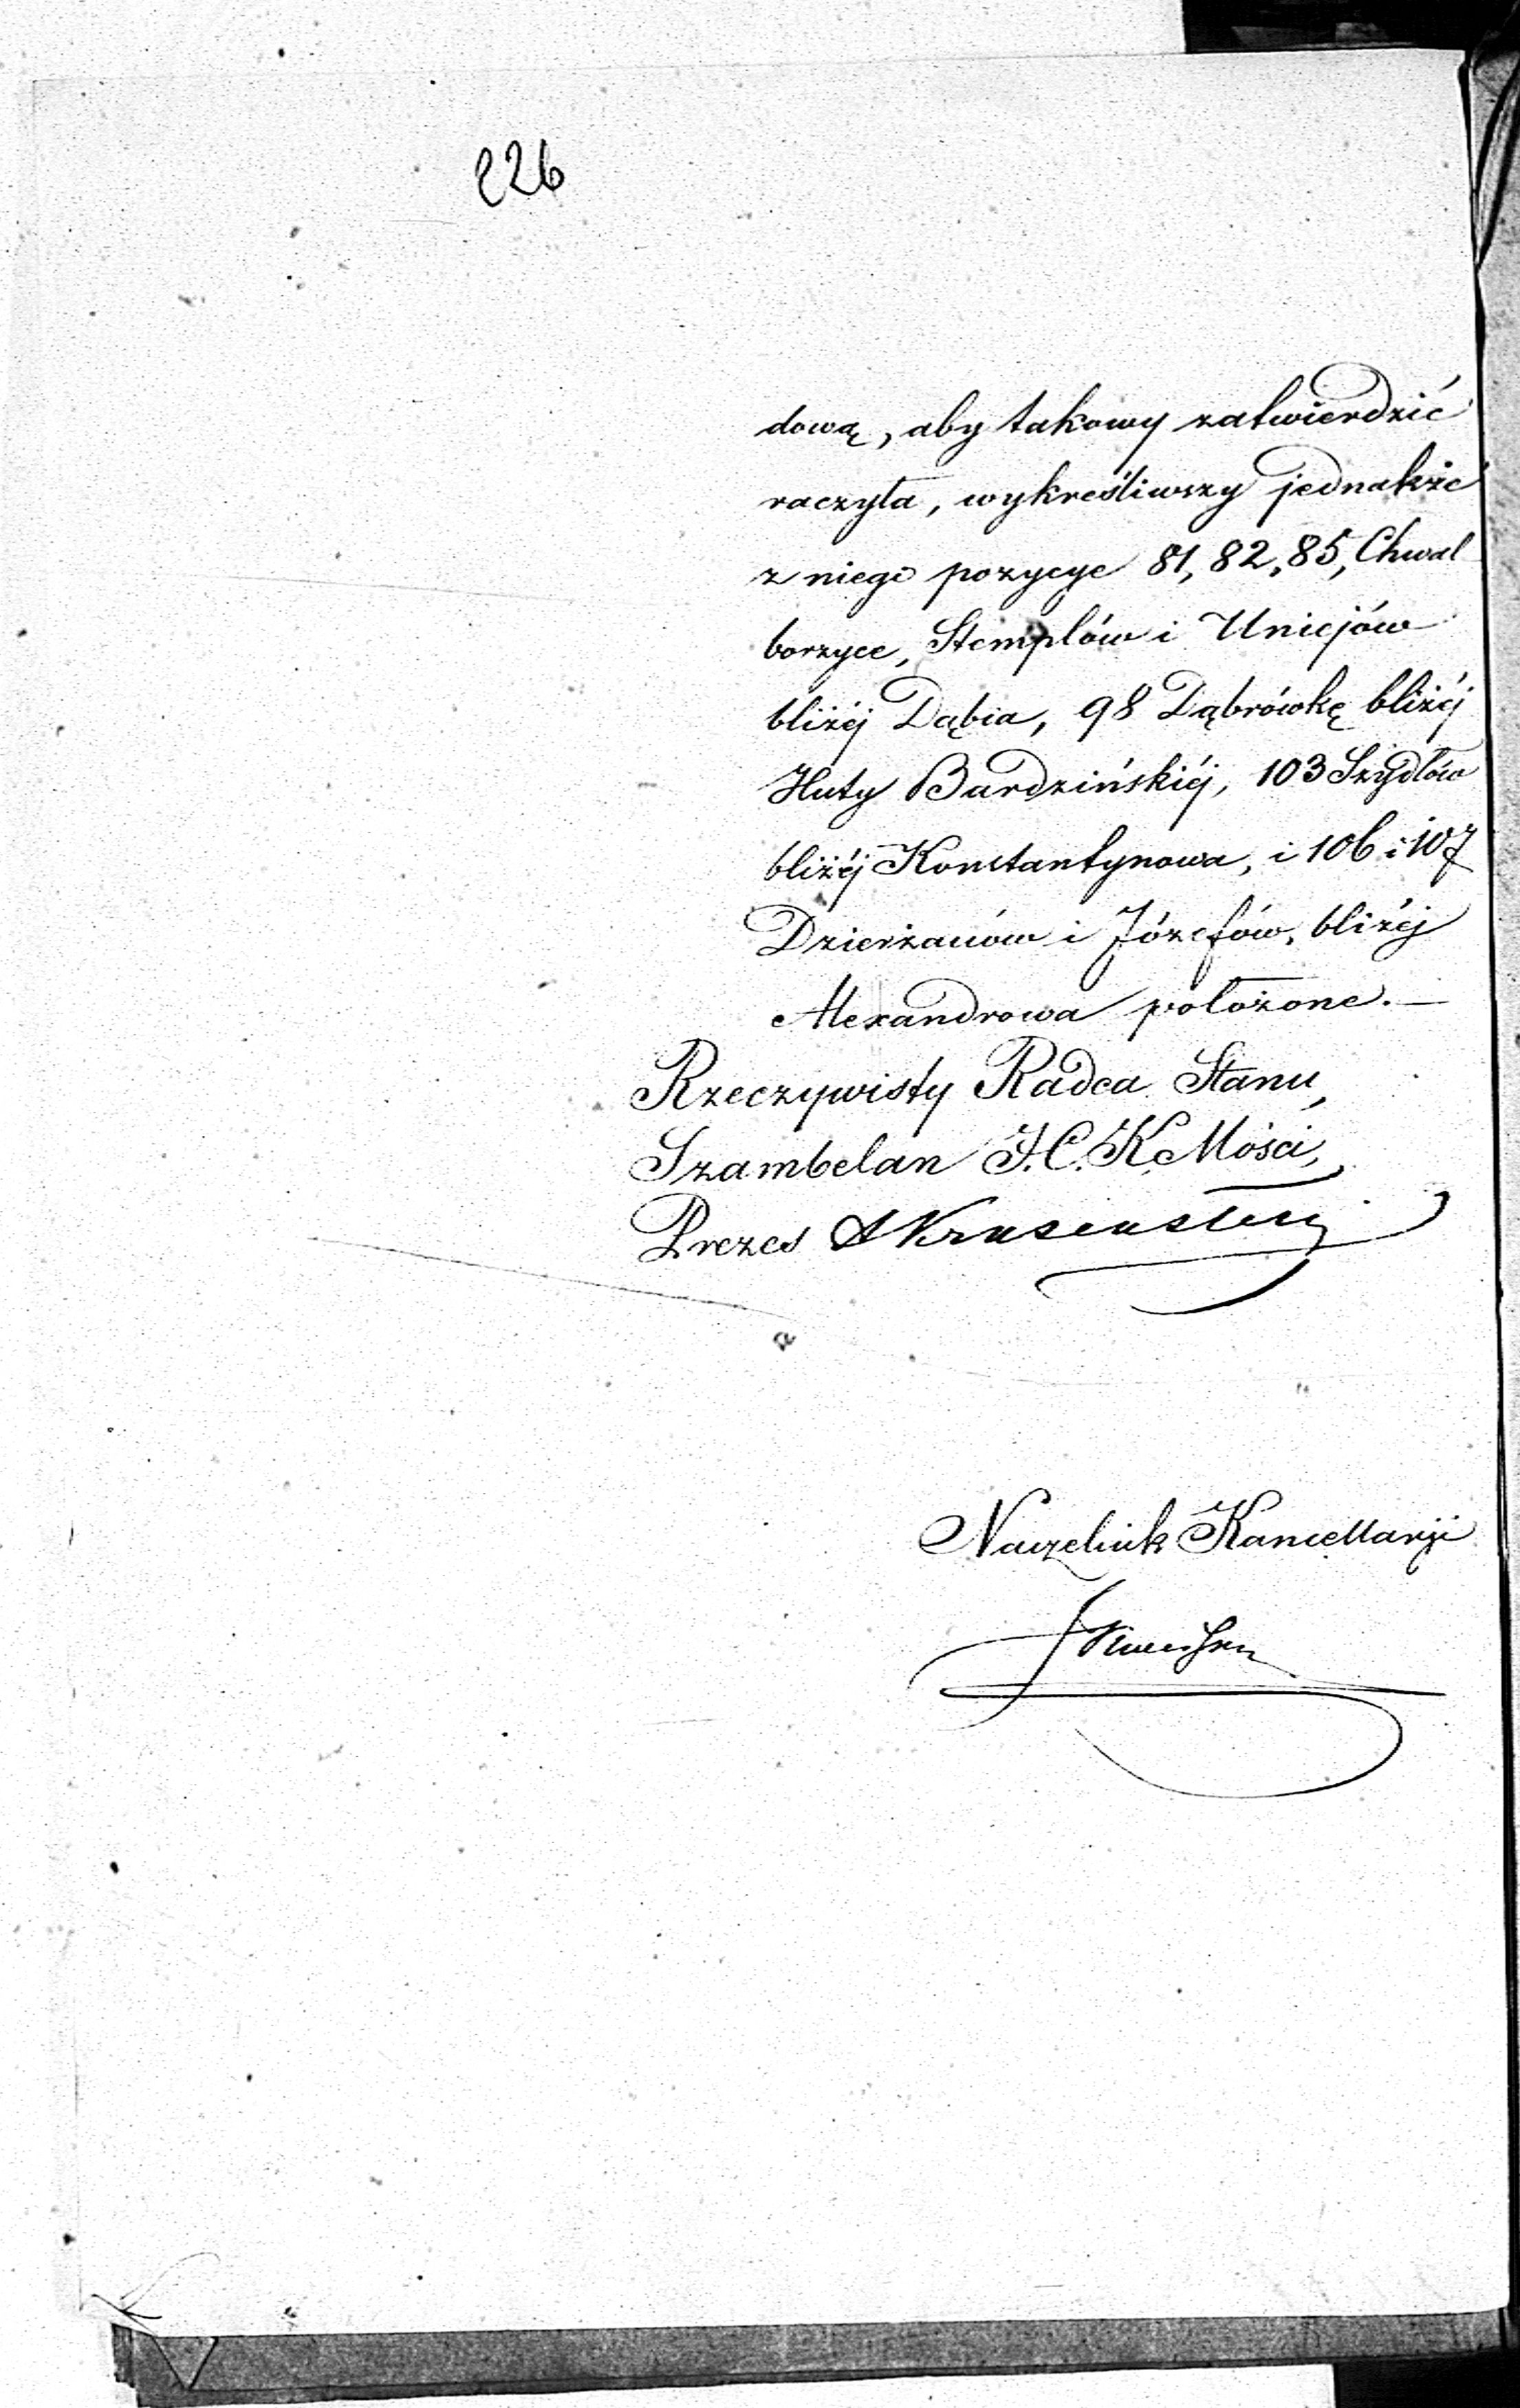 226
dową, aby takowy zatwierdzić
raczyła, wykreśliwszy jednakże
z niego pozycye 81, 82, 85, Chwal
borzyce, Stemplów i Uniejów
bliżéj Dąbia, 98 Dąbrówkę bliżéj
Huty Bardzińskiéj, 103 Szydłów
bliżéj Konstantynowa, i 106 i 107
Dzierżanów i Józefów, bliżéj
Alexandrowa położone. —
Rzeczywisty Radca Stanu,
Szambelan J. C. K. Mości,
Prezes AKrusenstern
Naczelnik Kancellarji